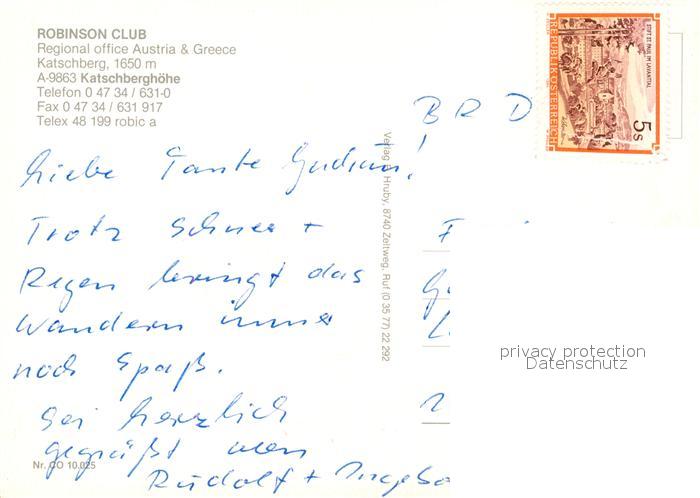 ROBINSON CLUB
Regional office Austria & Greece
Katschberg, 1650 m
A-9863 Katschberghöhe
Telefon 0 47 34 / 631-0
Fax 0 47 34 / 631 917
Telex 48 199 robic a
Liebe Tante Gudrun!
Trotz Schnee +
Regen bringt das
Wandern immer
noch Spaß.
Sei herzlich
gegrüßt von
Rudolf +
Nr. CO 10.025
Verlag Hruby, 8740 Zeltweg, Ruf (0 35 77) 22 292
BRD
REPUBLIK ÖSTERREICH
STIFT ST. PAUL IM LAVANTTAL
5 S
privacy protection
Datenschutz